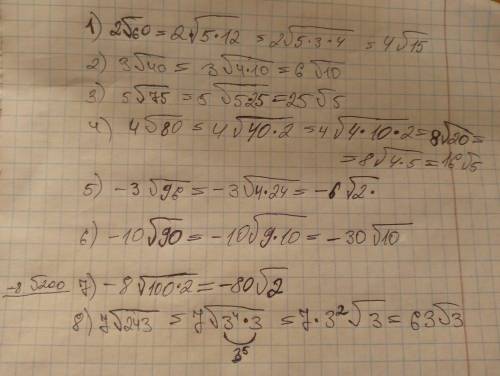 1) 2√60 = 2√5·12 = 2√5·3·4 = 4√15
2) 3√40 = 3√4·10 = 6√10
3) 5√75 = 5√5·25 = 25√5
4) 4√80 = 4√40·2 = 4√4·10·2 = 8√20 =
= 8√4·5 = 16√5
5) -3√96 = -3√4·24 = -6√2·
6) -10√90 = -10√9·10 = -30√10
-8√200 7) -8√100·2 = -80√2
8) 7√243 = 7√3⁴·3 = 7·3²√3 = 63√3
3⁵